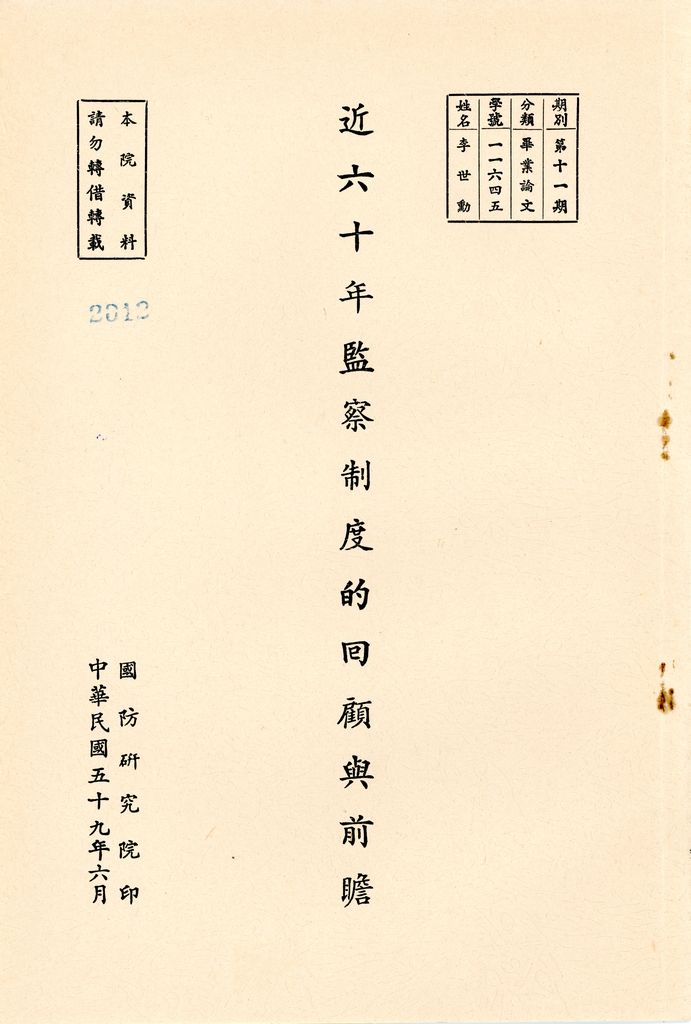 期別 第十一期
分類 畢業論文
學號 一一六四五
姓名 李世勳
近六十年監察制度的回顧與前瞻
本院資料
請勿轉借轉載
2012
國防研究院印
中華民國五十九年六月